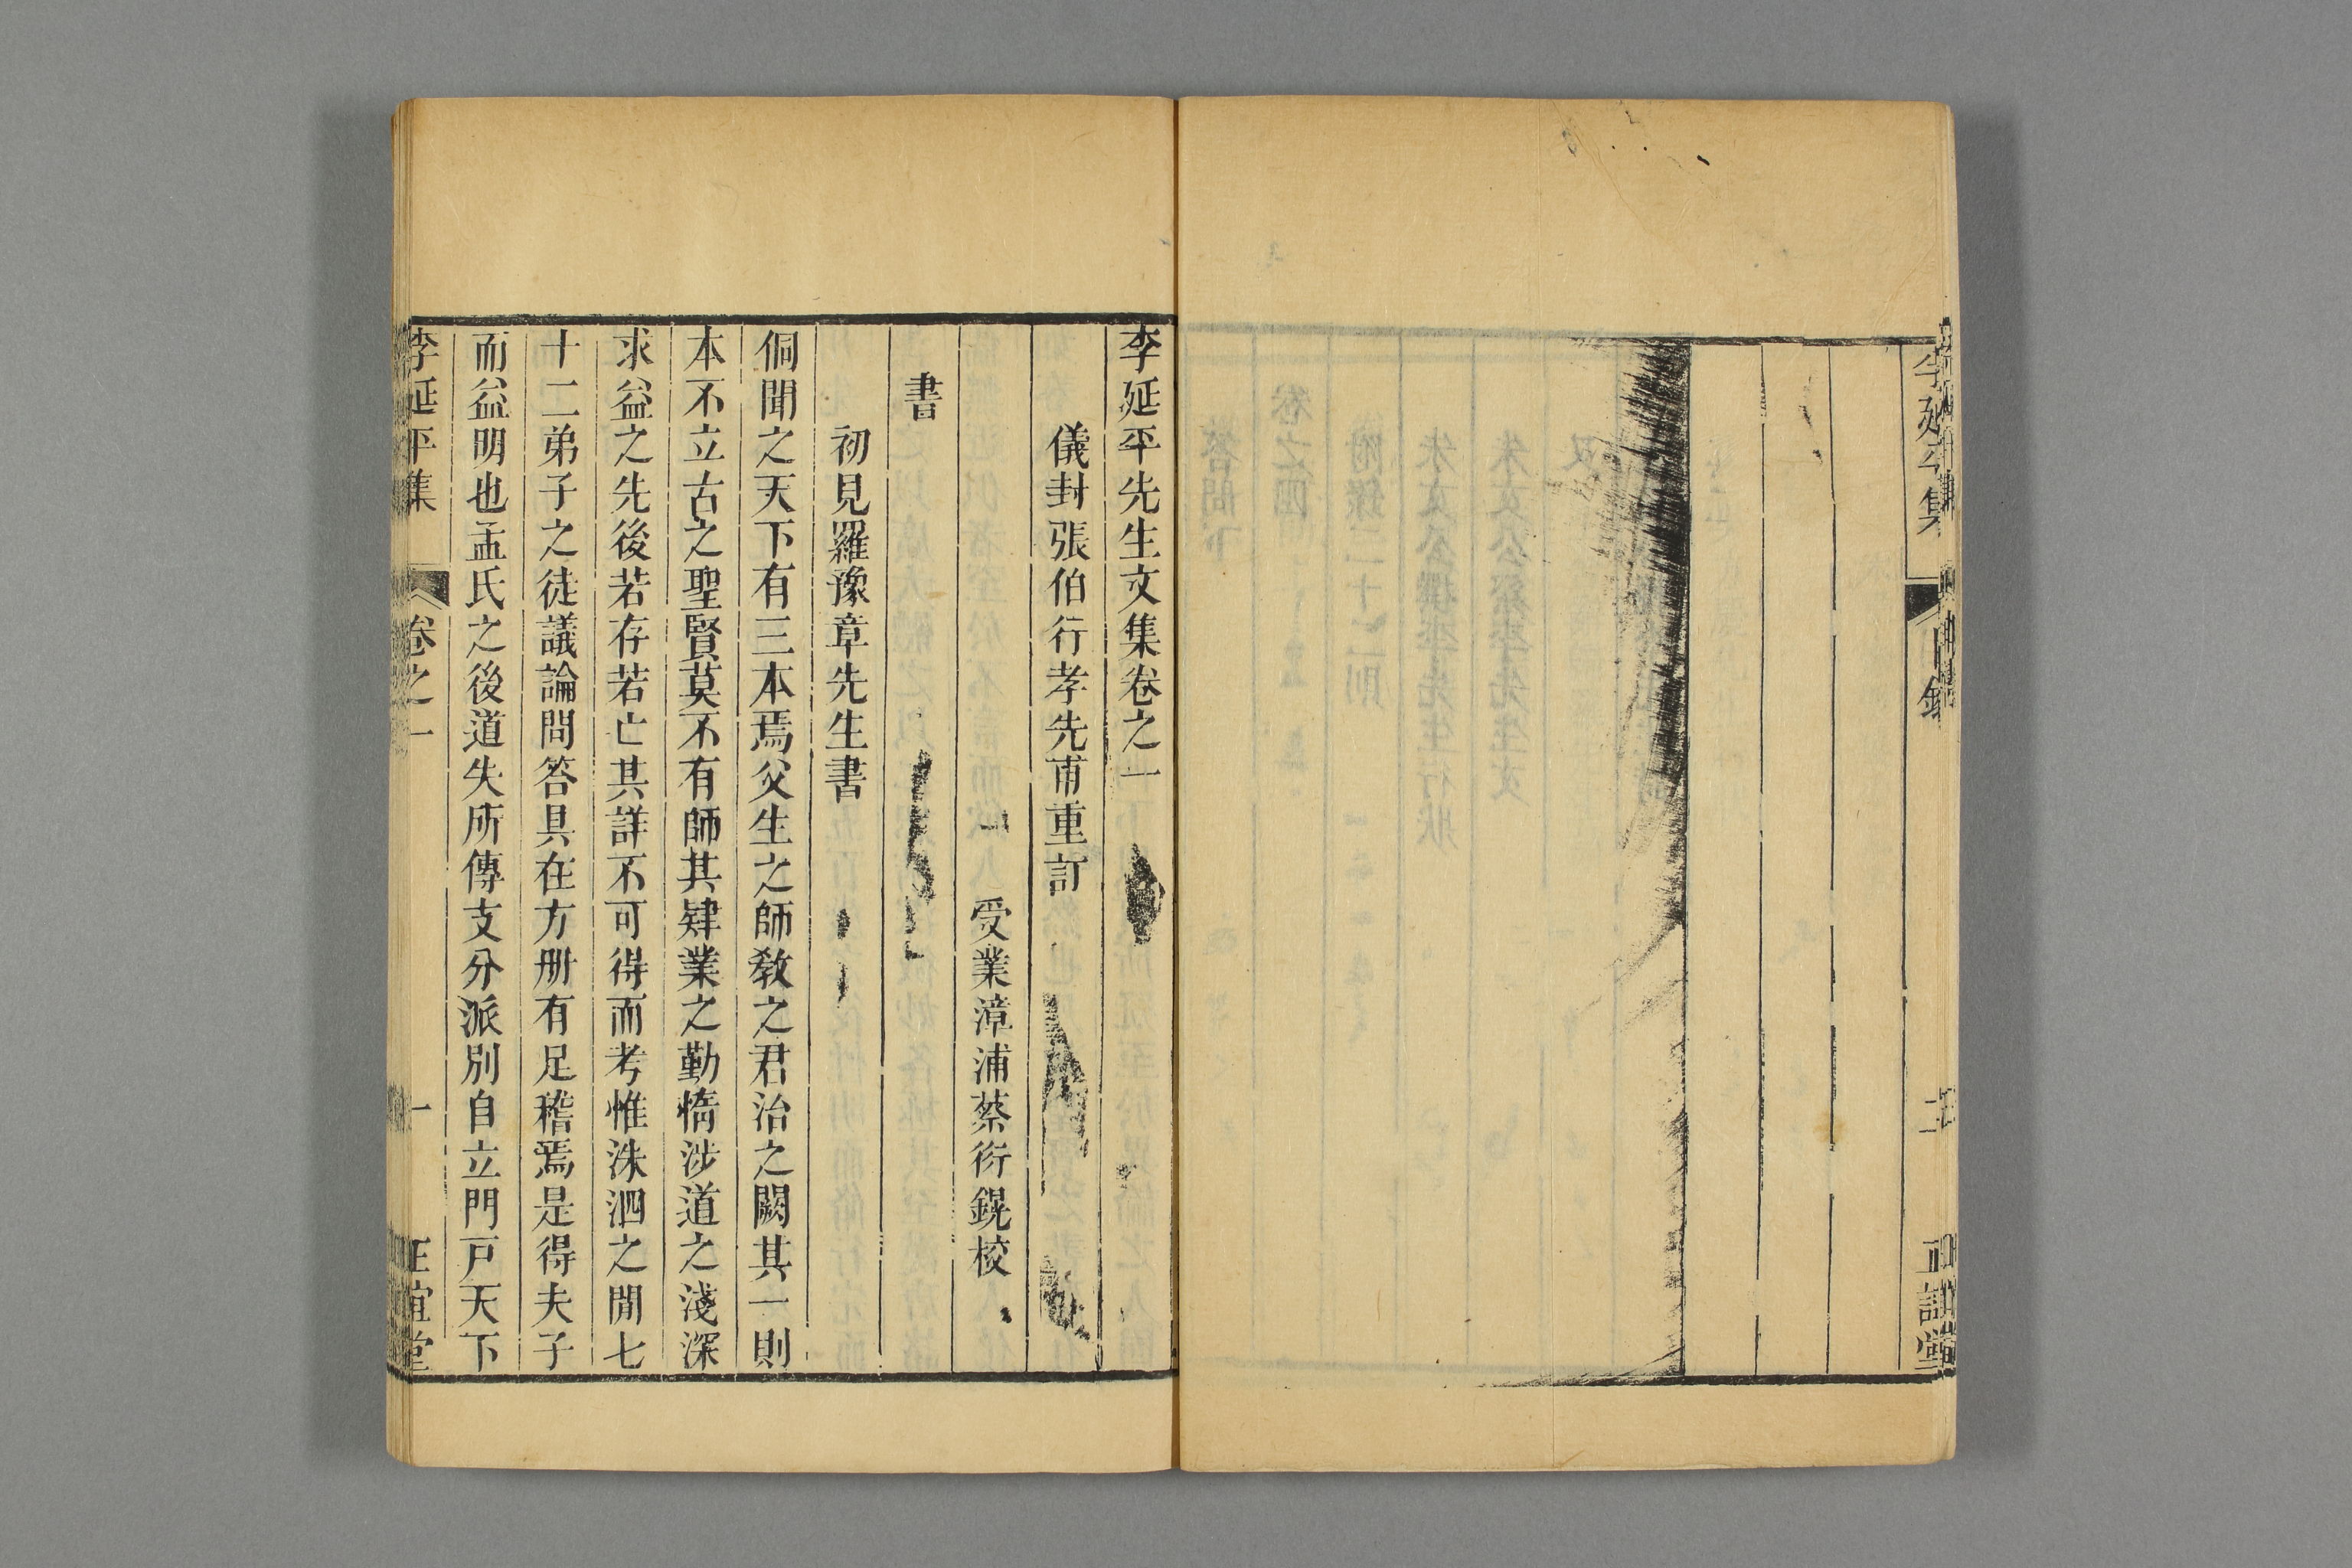 李延平集
目錄
二
正誼堂
李延平先生文集卷之一
儀封張伯行孝先甫重訂
受業漳浦蔡衍鎤校
書
初見羅豫章先生書
侗聞之天下有三本焉父生之師教之君治之闕其一則
本不立古之聖賢莫不有師其肄業之勤惰涉道之淺深
求益之先後若存若亡其詳不可得而考惟洙泗之閒七
十二弟子之徒議論問答具在方冊有足稽焉是得夫子
而益明也孟氏之後道失所傳支分派別自立門戸天下
李延平集
卷之一
一
正誼堂